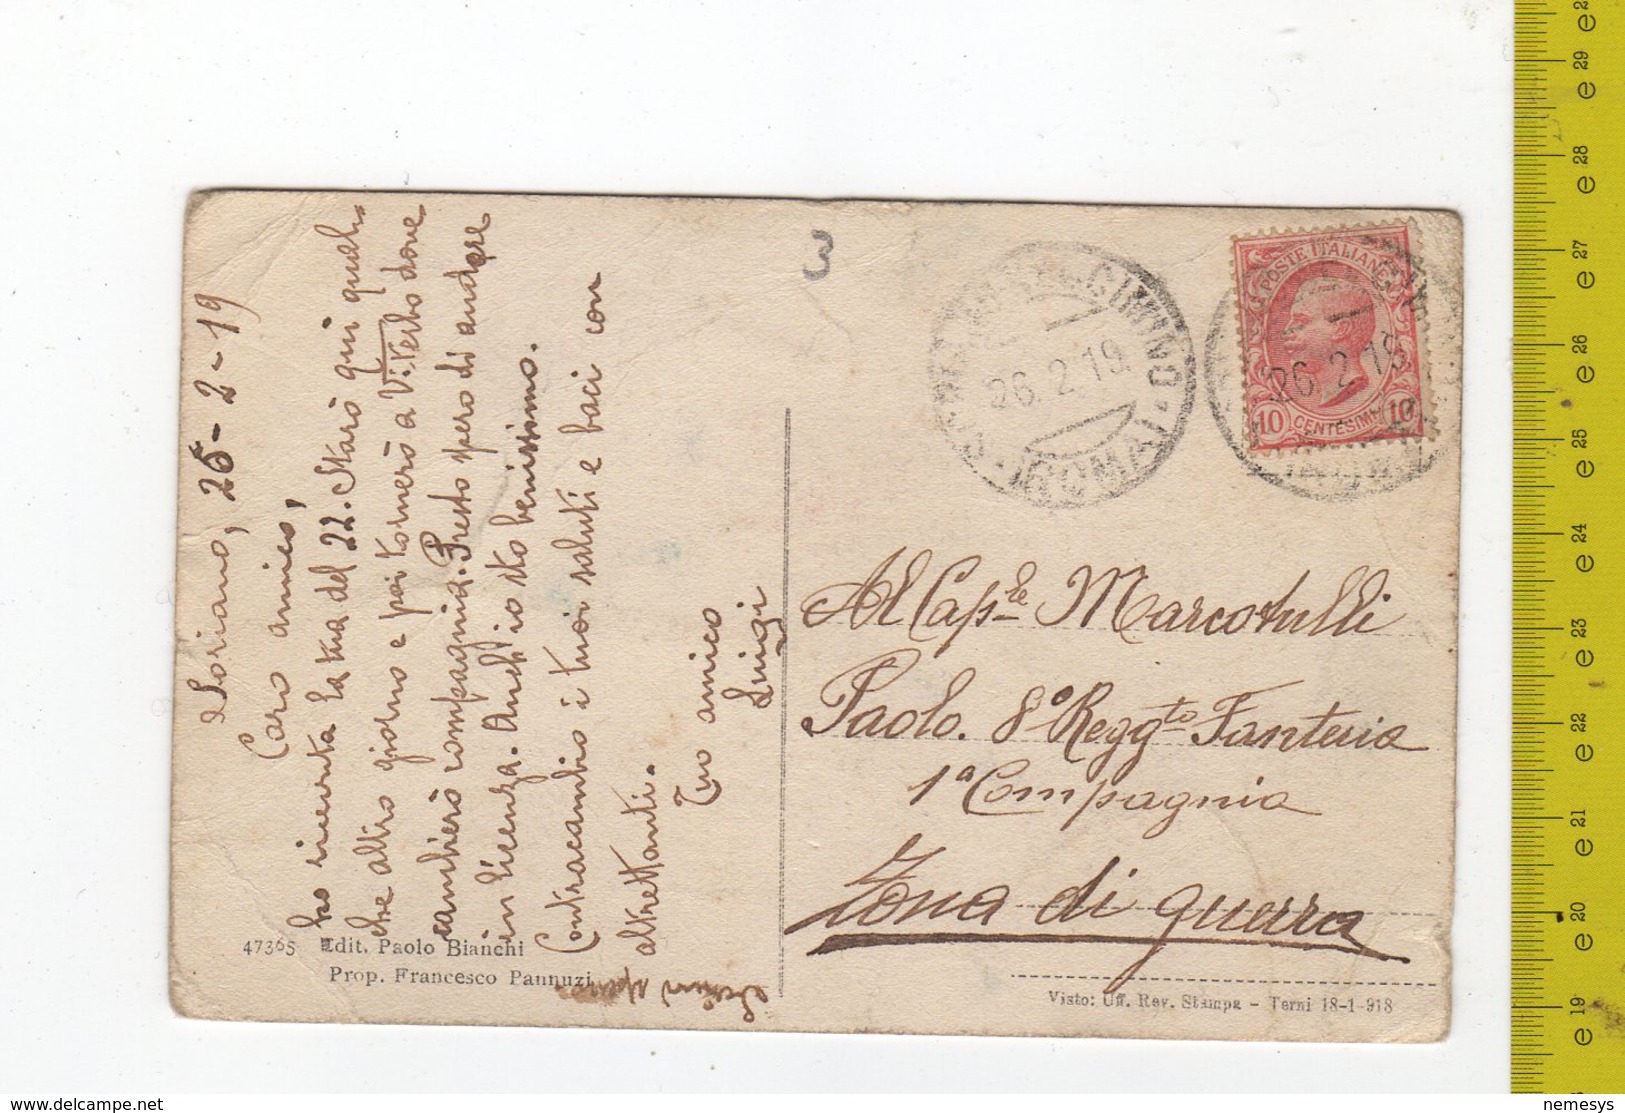 Soriano, 25-2-19
Caro amico,
ho ricevuta la tua del 22. Starò qui qualh
che altro giorno e poi tornerò a Viterbo dove
cambierò compagnia. Presto spero di andare
in licenza. Anch'io sto benissimo.
Contracambio i tuoi saluti e baci con
altrettanti.
Tuo amico
Luigi
Scrivi spesso
47365 Edit. Paolo Bianchi
Prop. Francesco Pannuzi
3
CIMINO
(ROMA)
26.2.19
POSTE ITALIANE
26.2.19
10 CENTESIMI 10
Al Cap.le Marcotulli
Paolo. 8° Regg.to Fanteria
1ª Compagnia
Zona di guerra
Visto: Uff. Rev. Stampa - Terni 18-1-918
29
28
27
26
25
24
23
22
21
20
19
delcampe.net
nemesys